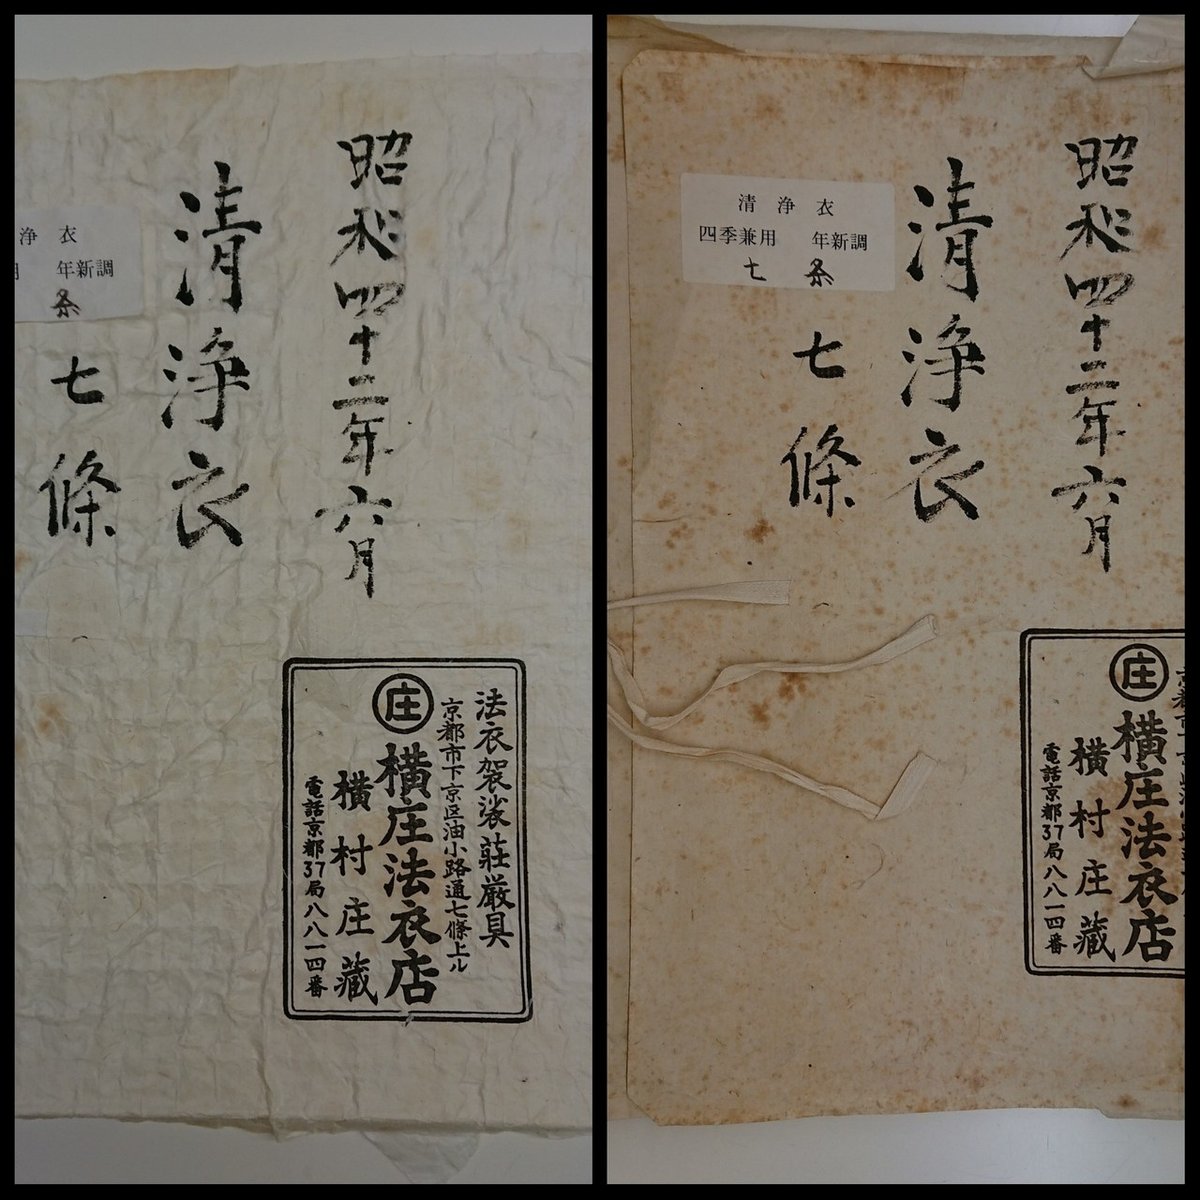 昭和四十二年六月
清浄衣
七條
浄衣
用　年新調
条
法衣袈裟莊厳具
京都市下京区油小路通七條上ル
庄
横庄法衣店
横村庄藏
電話京都37局八八一四番
昭和四十二年六月
清浄衣
七條
清浄衣
四季兼用　年新調
七条
庄
横庄法衣店
横村庄藏
電話京都37局八八一四番